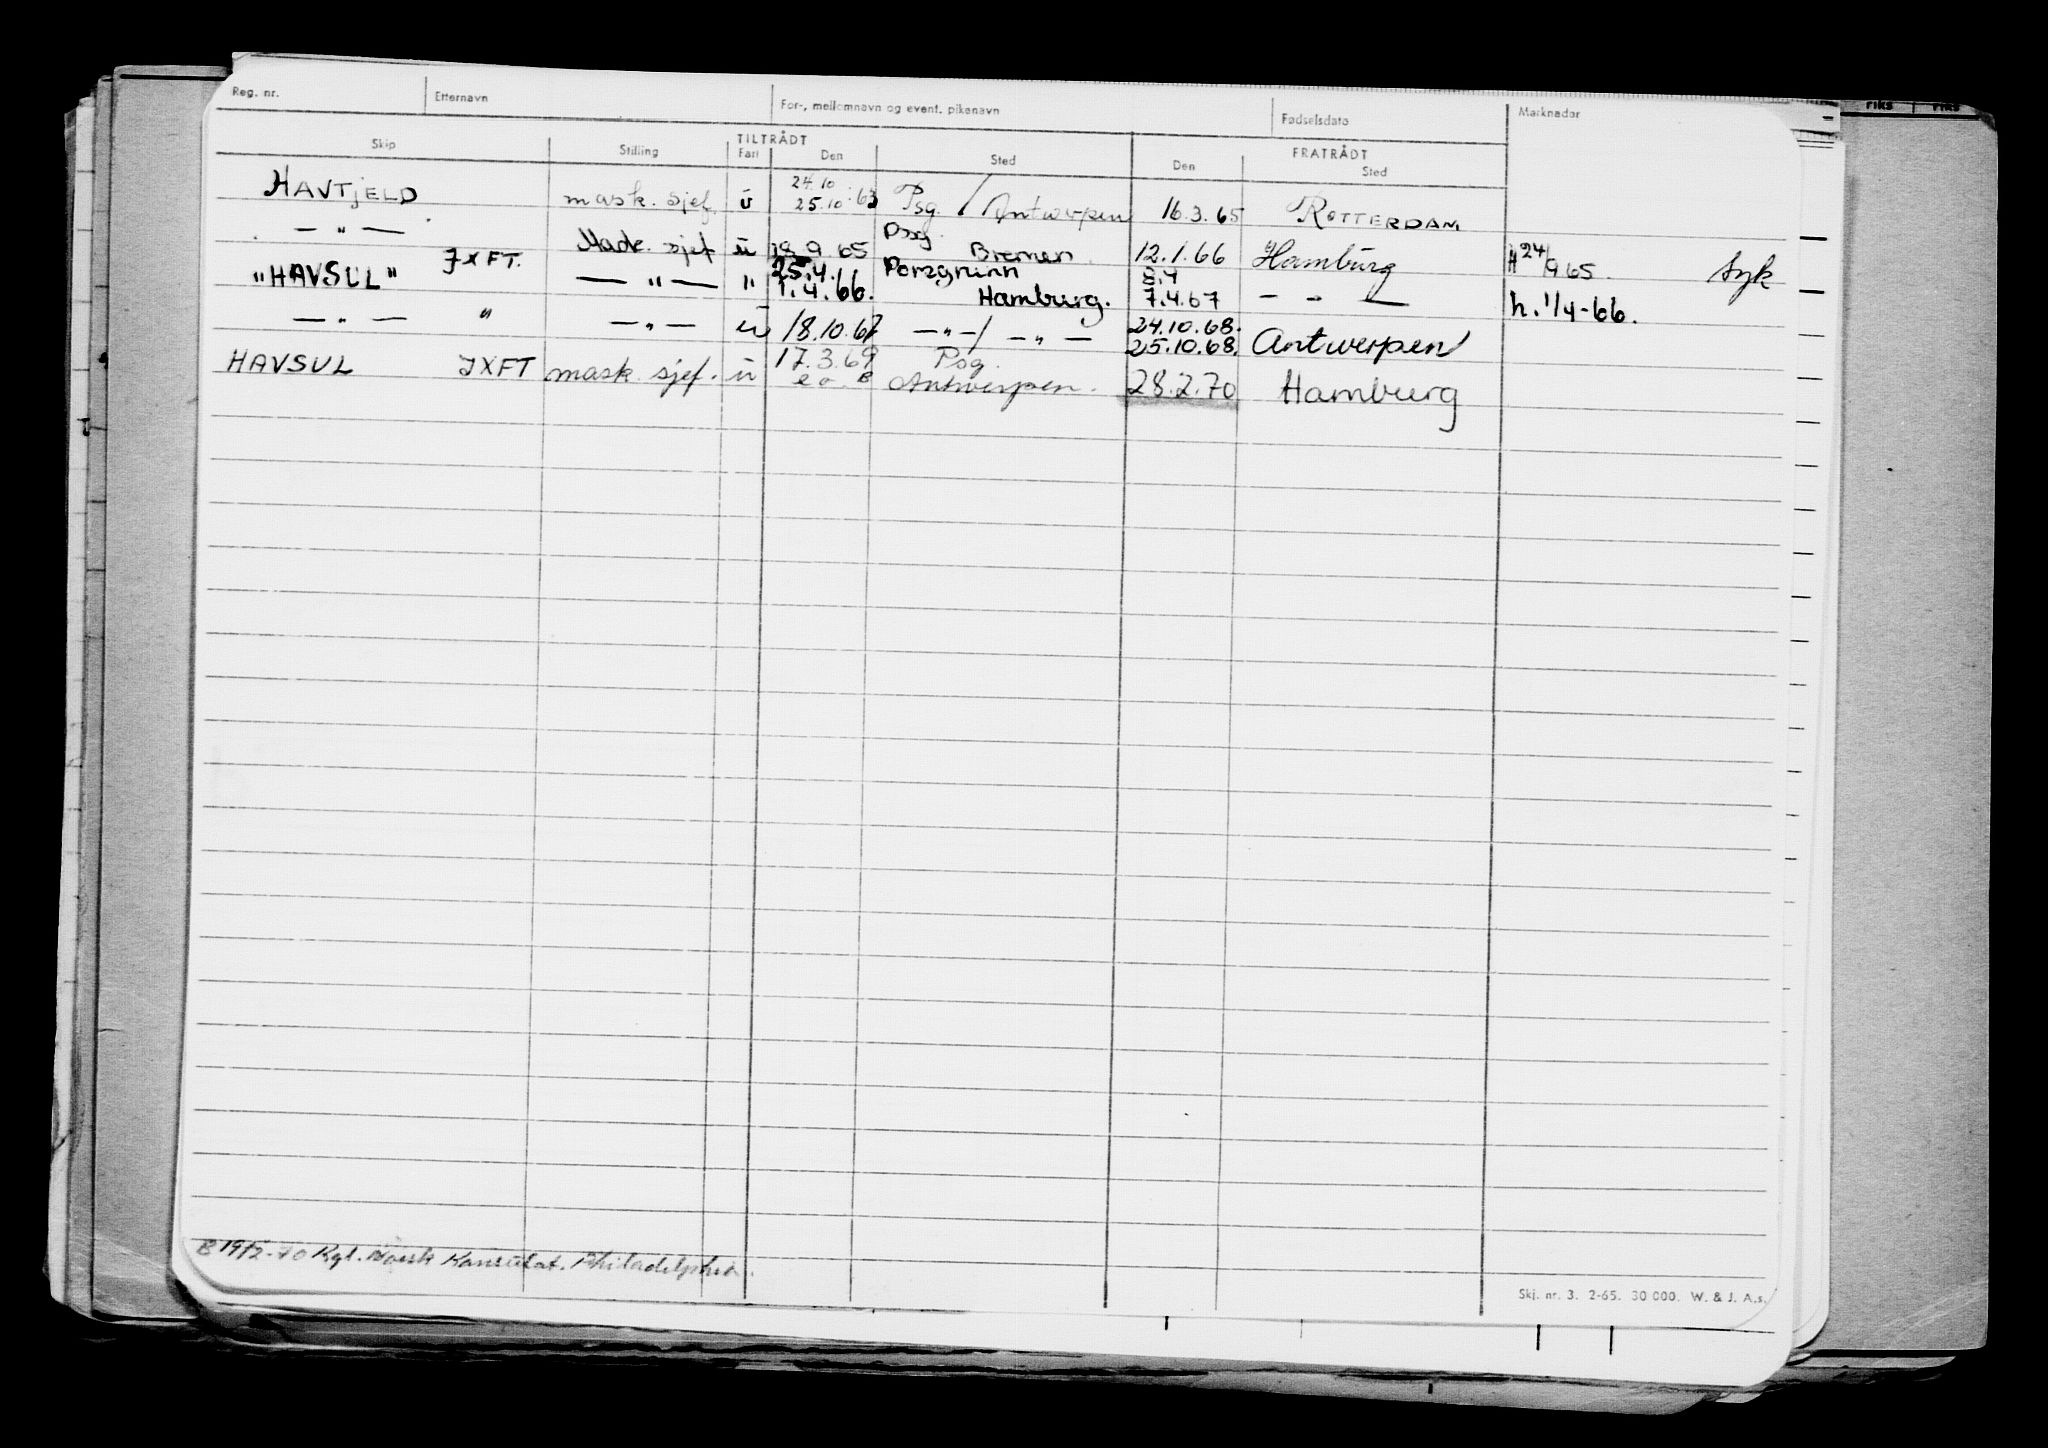 Reg. nr. Etternavn For-, mellomnavn og event. pikenavn Fødselsdato Merknader
TILTRÅDT FRATRÅDT
Skip Stilling Fart Den Sted Den Sted
HAVTJELD mask. sjef. u 24.10 25.10.63 Psg. / Antwerpen 16.3.65 ROTTERDAM
— " — Mask. sjef u 18.9.65 Psg. Bremen 12.1.66 Hamburg H 24/9 65. Syk
"HAVSUL" JXFT. — " — " 25.4. 1.4.66. Porsgrunn Hamburg. 8.4 7.4.67 — " — h. 1/4-66.
— " — " — " — u 18.10.67 — " — / — " — 24.10.68. 25.10.68. Antwerpen
HAVSUL JXFT mask. sjef. u 17.3.69 Psg. Antwerpen. 28.2.70 Hamburg
Kgl. Norsk Konsulat. Philadelphia.
Skj. nr. 3. 2-65. 30 000. W. & J. A.s.
riks riks